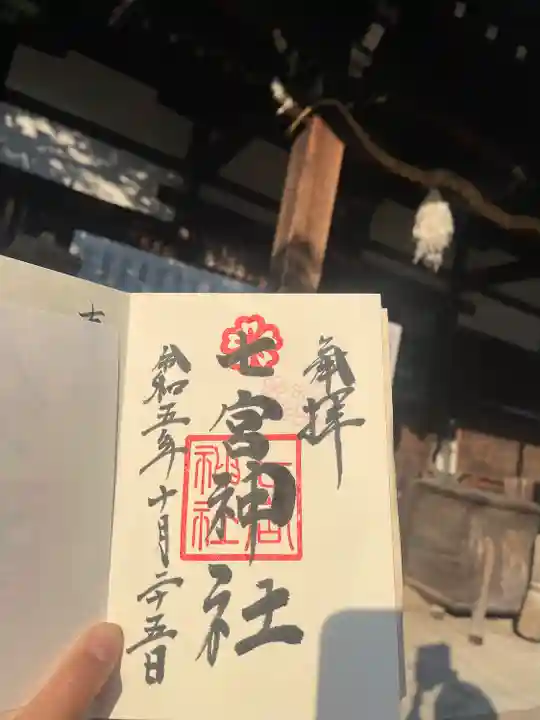 奉拝
七宮神社
七宮神社
令和五年十月二十五日